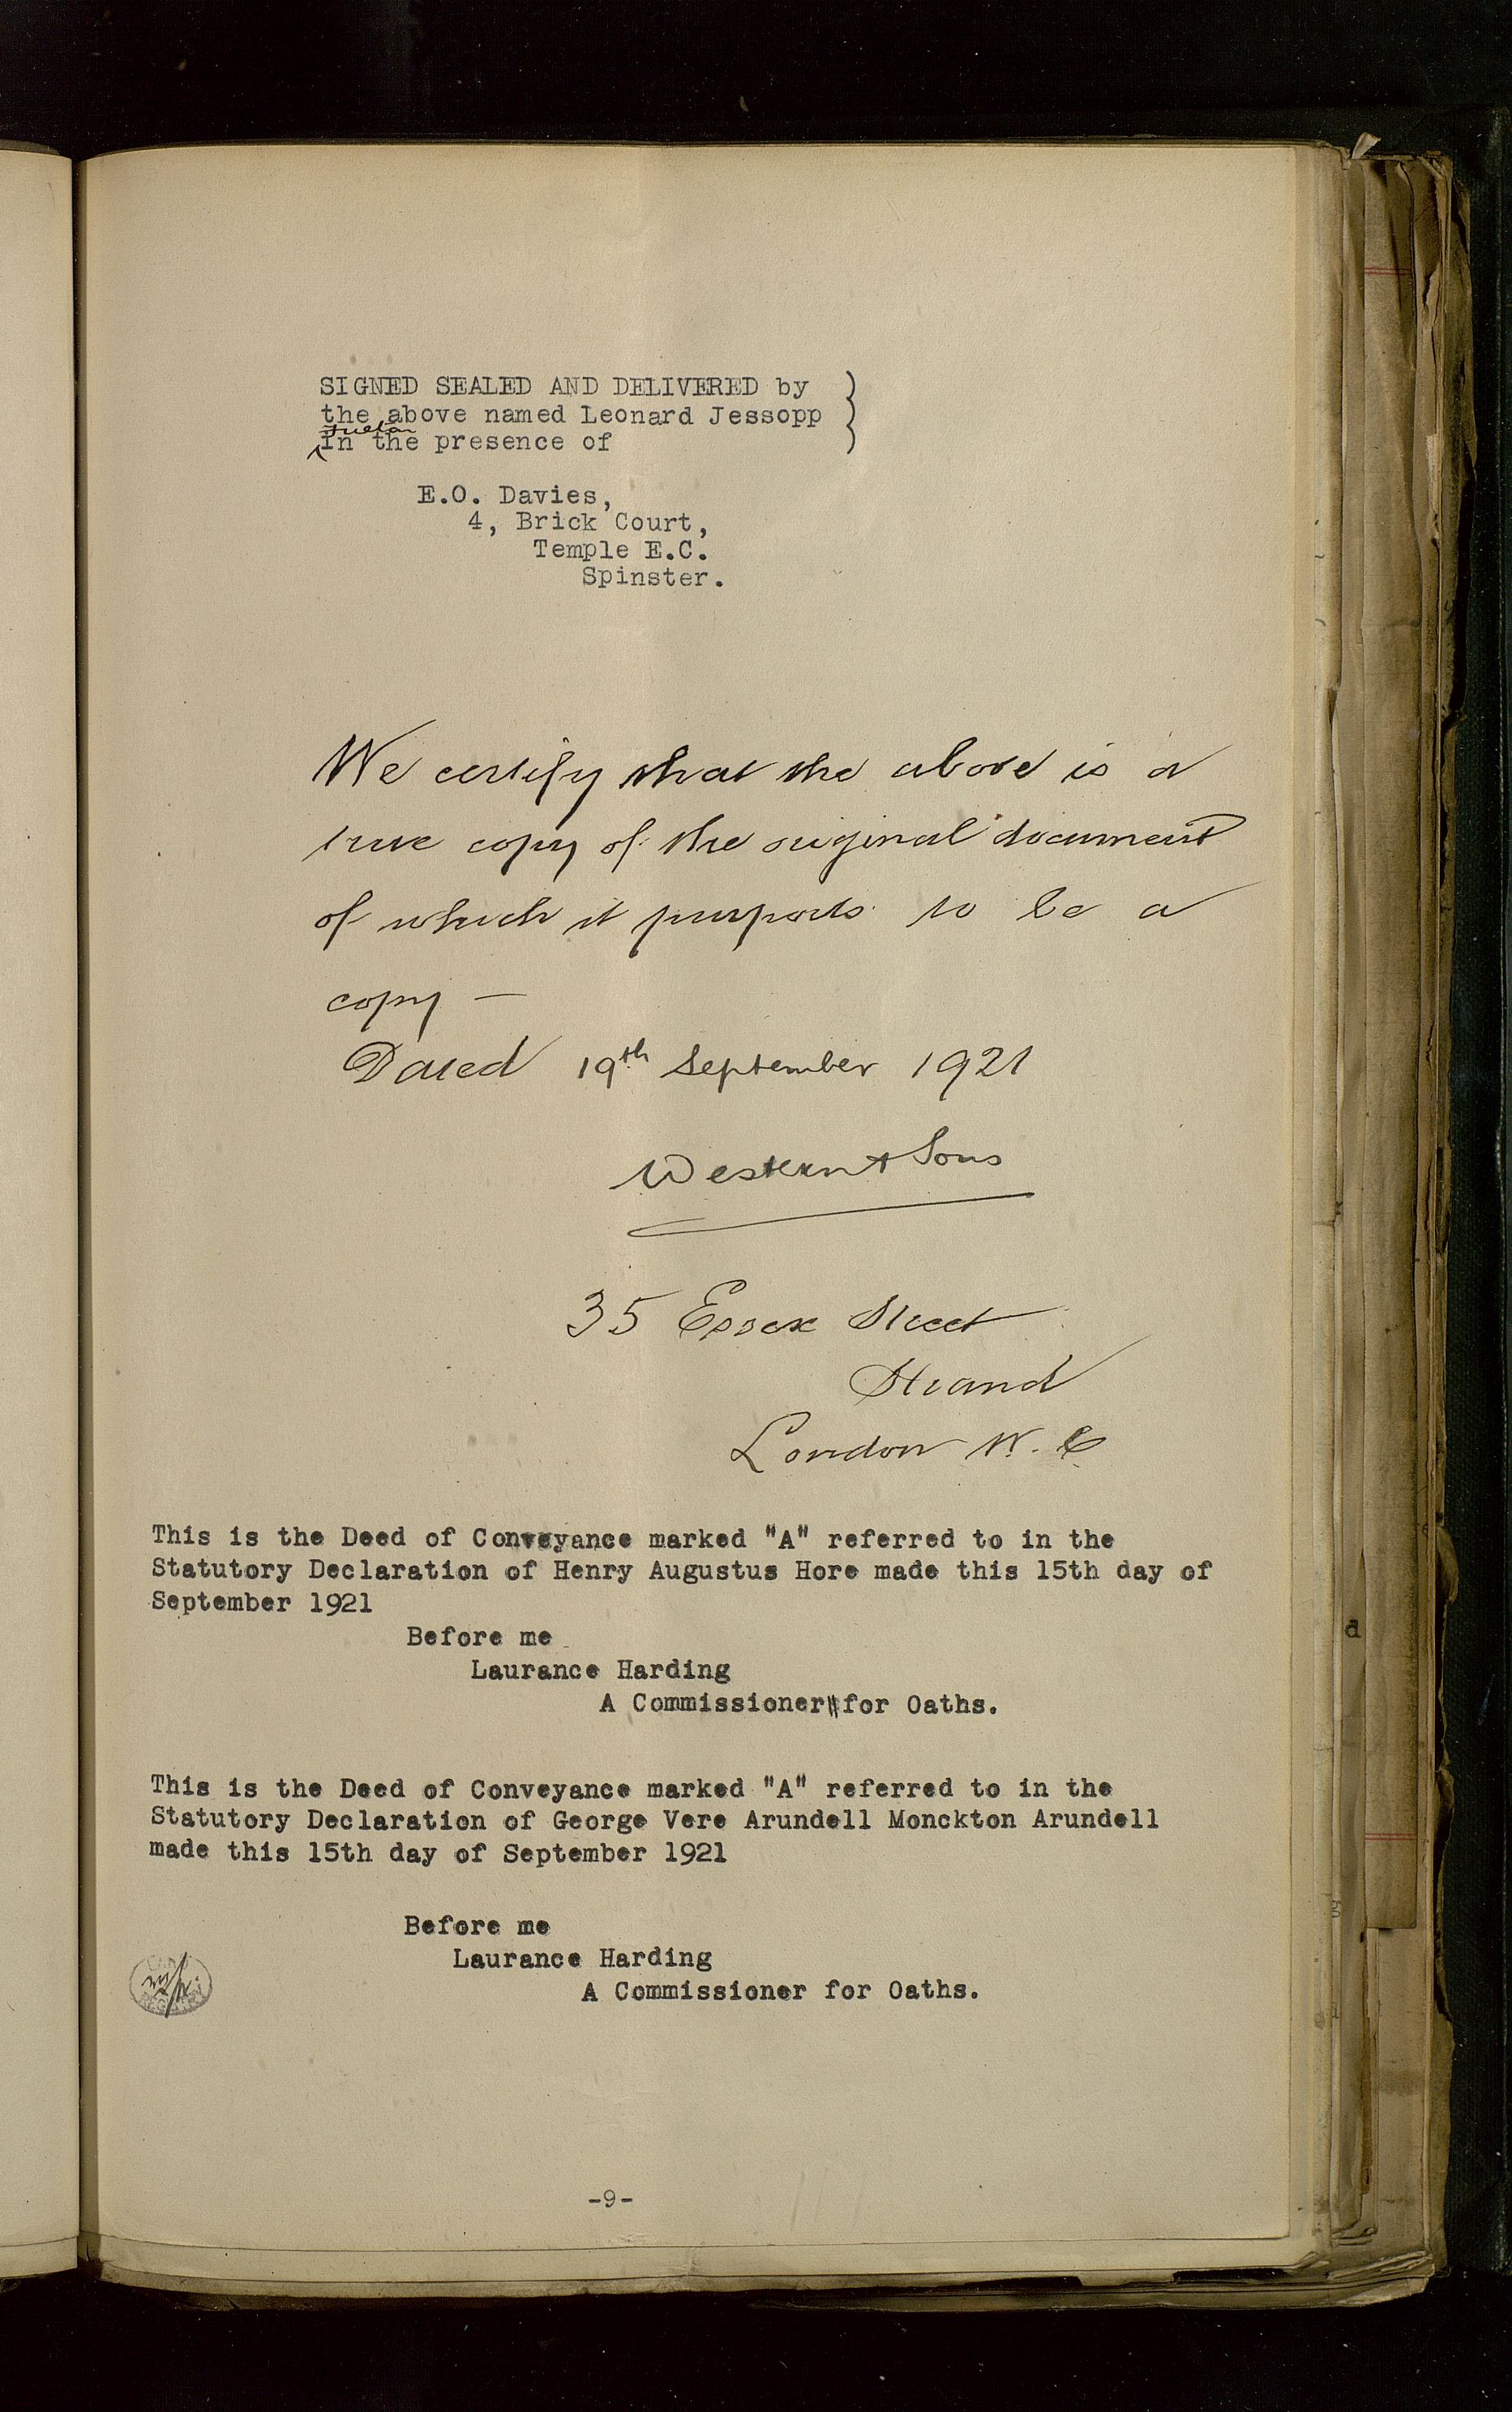 SIGNED SEALED AND DELIVERED by
the above named Leonard Jessopp
Fulton
In the presence of
E.O. Davies,
4, Brick Court,
Temple E.C.
Spinster.
We certify that the above is a
true copy of the original document
of which it purports to be a
copy —
Dated 19th September 1921
Western & Sons
35 Essex Street
Strand
London W.C
This is the Deed of Conveyance marked "A" referred to in the
Statutory Declaration of Henry Augustus Hore made this 15th day of
September 1921
Before me
Laurance Harding
A Commissioner for Oaths.
This is the Deed of Conveyance marked "A" referred to in the
Statutory Declaration of George Vere Arundell Monckton Arundell
made this 15th day of September 1921
Before me
Laurance Harding
A Commissioner for Oaths.
-9-
d